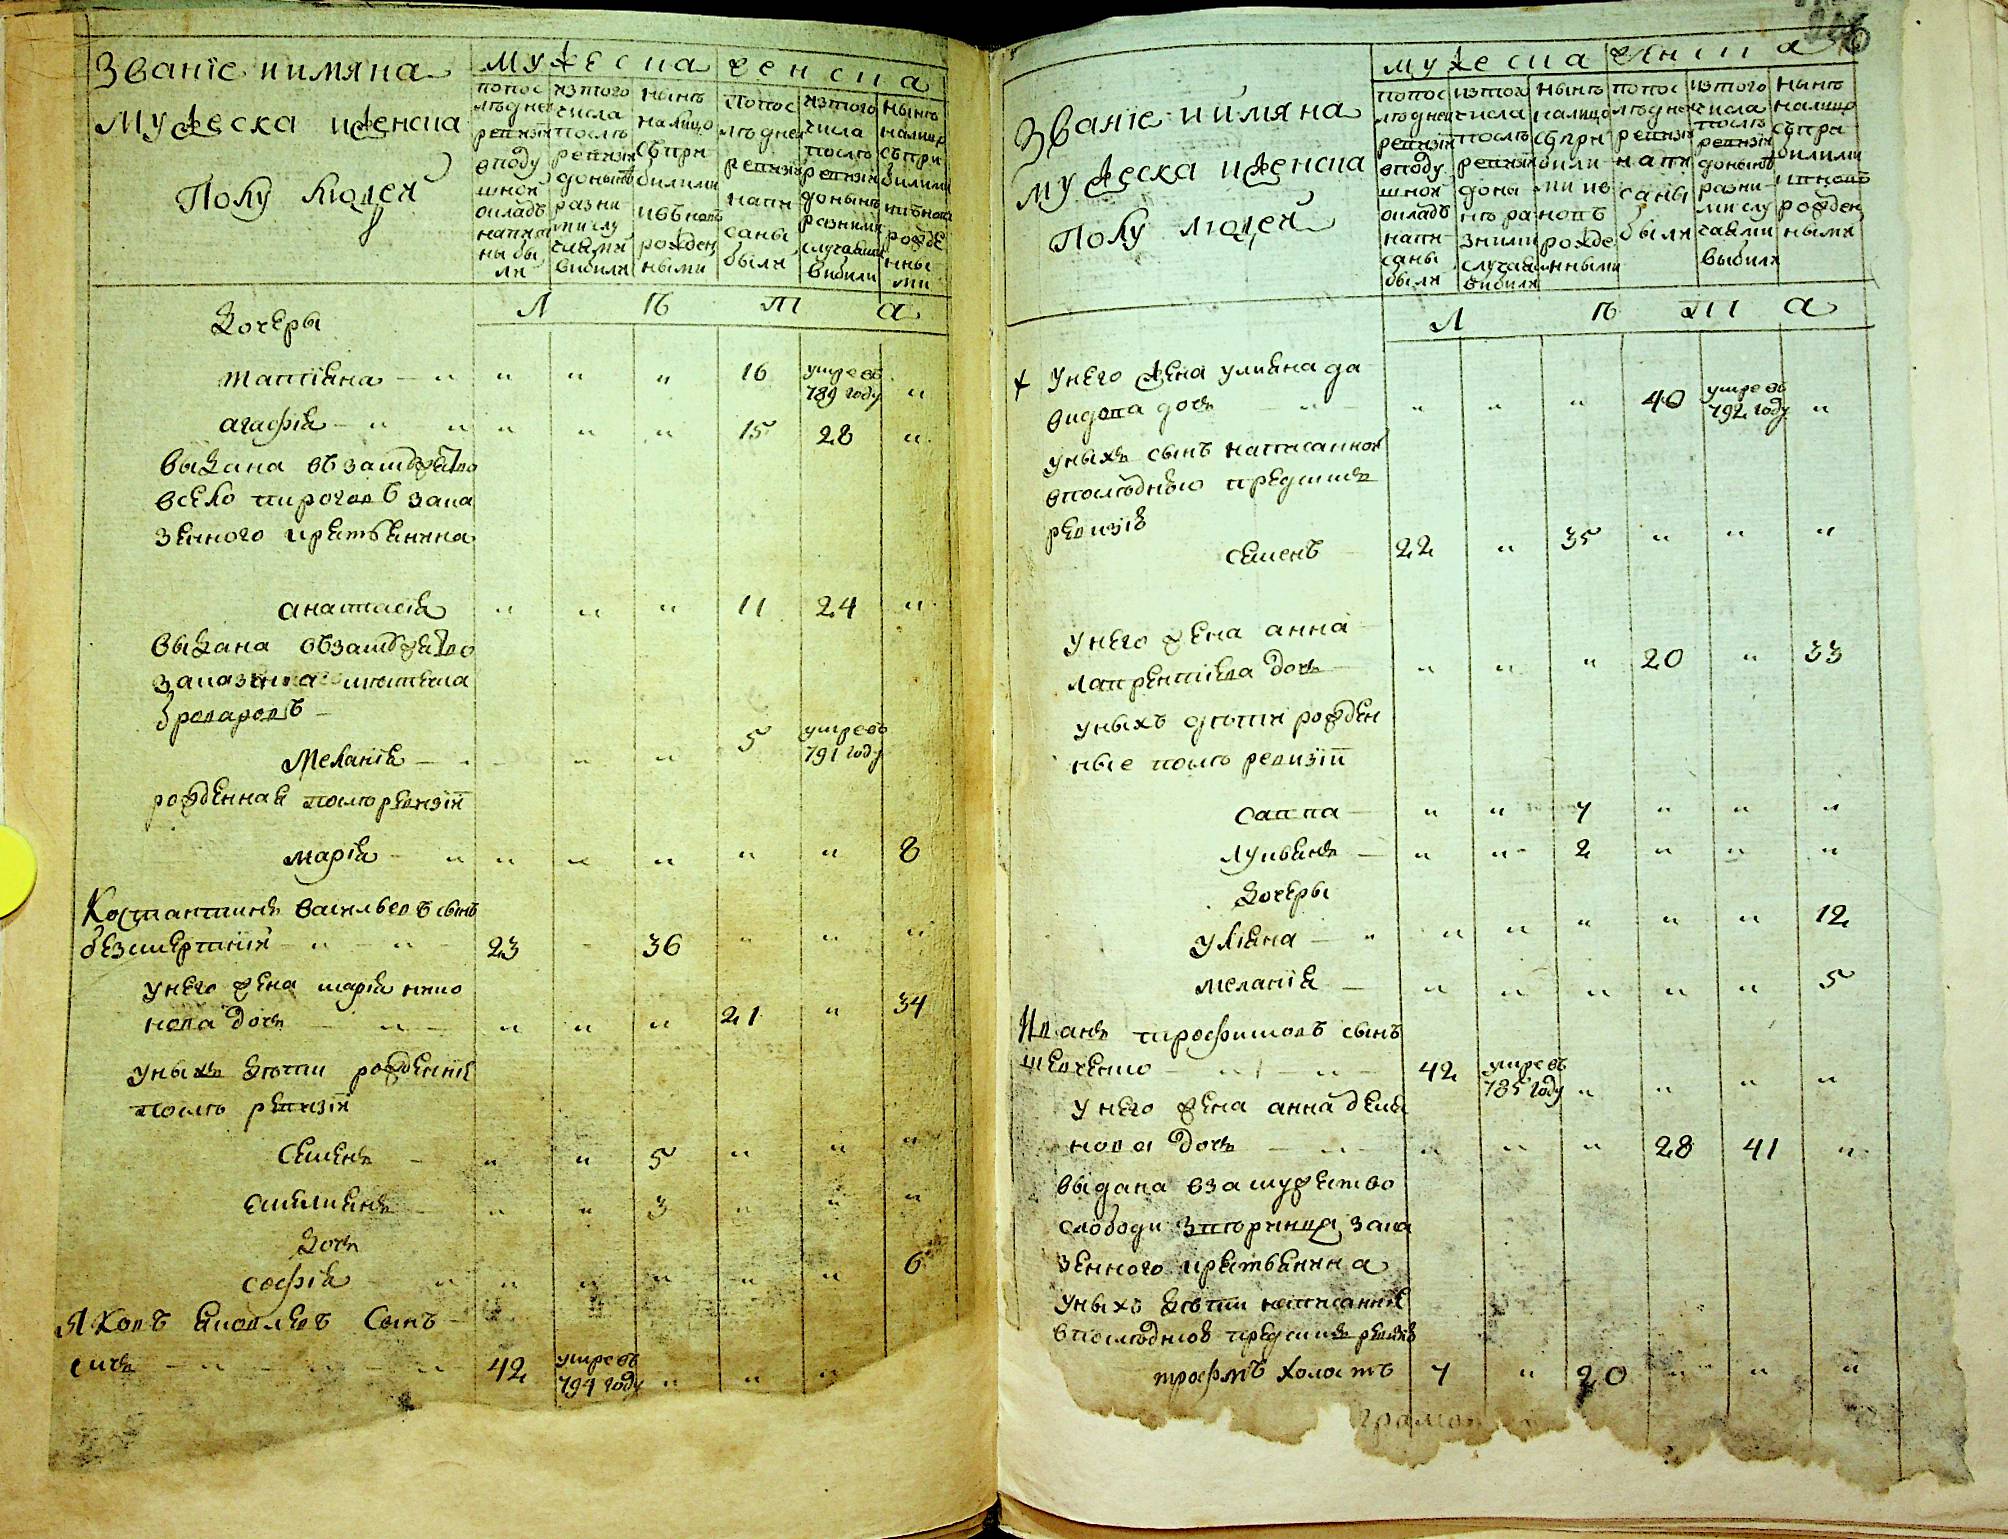 Званїе иимяна
Мужеска иженска
Полу Людей
мужеска женска
попос лѣдней ревизїи вподушной окладъ написаны были
изтого числа послѣ ревизїи донынѣ разними случаями вибили
нынѣ налицо съприбилими ивъновь рожденными
Попослѣдней ревизїи написаны были
изтого числа послѣ ревизїи донынѣ разними случаями вибили
нынѣ налицо съприбилими ивновь рожденными
Л ѣ т а
Дочеры
татїяна " " " " 16 умре въ 789 году "
агафїя " " " " 15 28 "
выдана въ замужество
всело пирогов ъ зака
зенного крестьянина
анастасїя " " " 11 24 "
выдана въ замужество
заказенна
Меланїя " " " 5 умре въ 791 году
рожденная послѣ ревизїи
марїя " " " " " " 8
Костантинъ васильевъ сынъ
безмертний " " 23 " 36 " " "
унего жена марїя нико
нова дочь " " " " 21 " 34
уныхъ дѣти рожденнїе
послѣ ревизїи
Семенъ " " 5 " " "
емилианъ " " 3 " " "
Дочь
софїя " " " " " " 6
Яковъ Яковлевъ Сынъ
сичъ " " " 42 умре въ 794 году " " "
Званїе иимяна
мужеска иженска
Полу людей
мужеска женска
попос лѣдней ревизїи вподушной окладъ написаны были
изтого числа послѣ ревизїи донынѣ разними случаями вибили
нынѣ налицо съприбилими ивновь рожденными
попослѣдней ревизїи написаны были
изтого числа послѣ ревизїи донынѣ разними случаями выбили
нынѣ налицо съприбилими ивновь рожденными
Л ѣ т а
унего жена улияна да
видова дочь " " " " 40 умре въ 792 году "
уныхъ сынъ написанной
впослѣднюю предъ симъ
ревизїю
Семенъ 22 " 35 " " "
унего жена анна
лаврентїева дочь " " " 20 " 33
уныхъ дѣти рожден
ные послѣ ревизїи
савва " " 7 " " "
лукьянъ " " 2 " " "
Дочеры
улїяна " " " " " " 12
меланїя " " " " " 5
Иванъ трофимовъ сынъ
шевченко " " 42 умре въ 785 году " " " "
унего жена анна демя
нова дочь " " " 28 41 "
выдана взамужество
слободи зака
зенного крестьянина
уныхъ дѣти написаннїе
впослѣднюю предъ симъ ревизїю
трофимъ холостъ 7 " 20 " " "